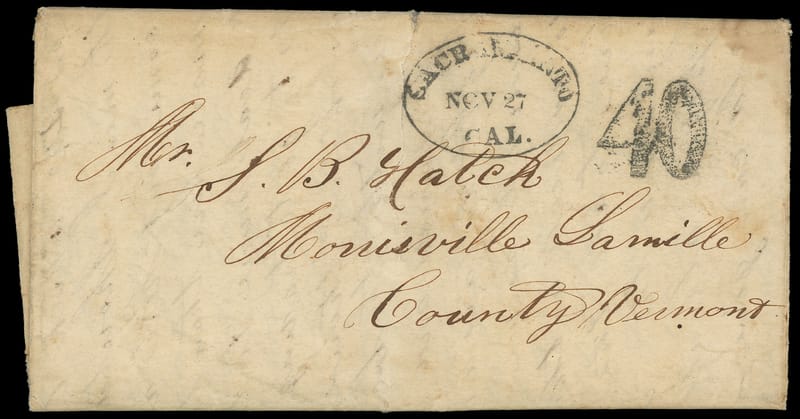 SACRAMENTO
NOV 27
CAL.
40
Mr. S. B. Hatch
Morrisville Lamille
County Vermont